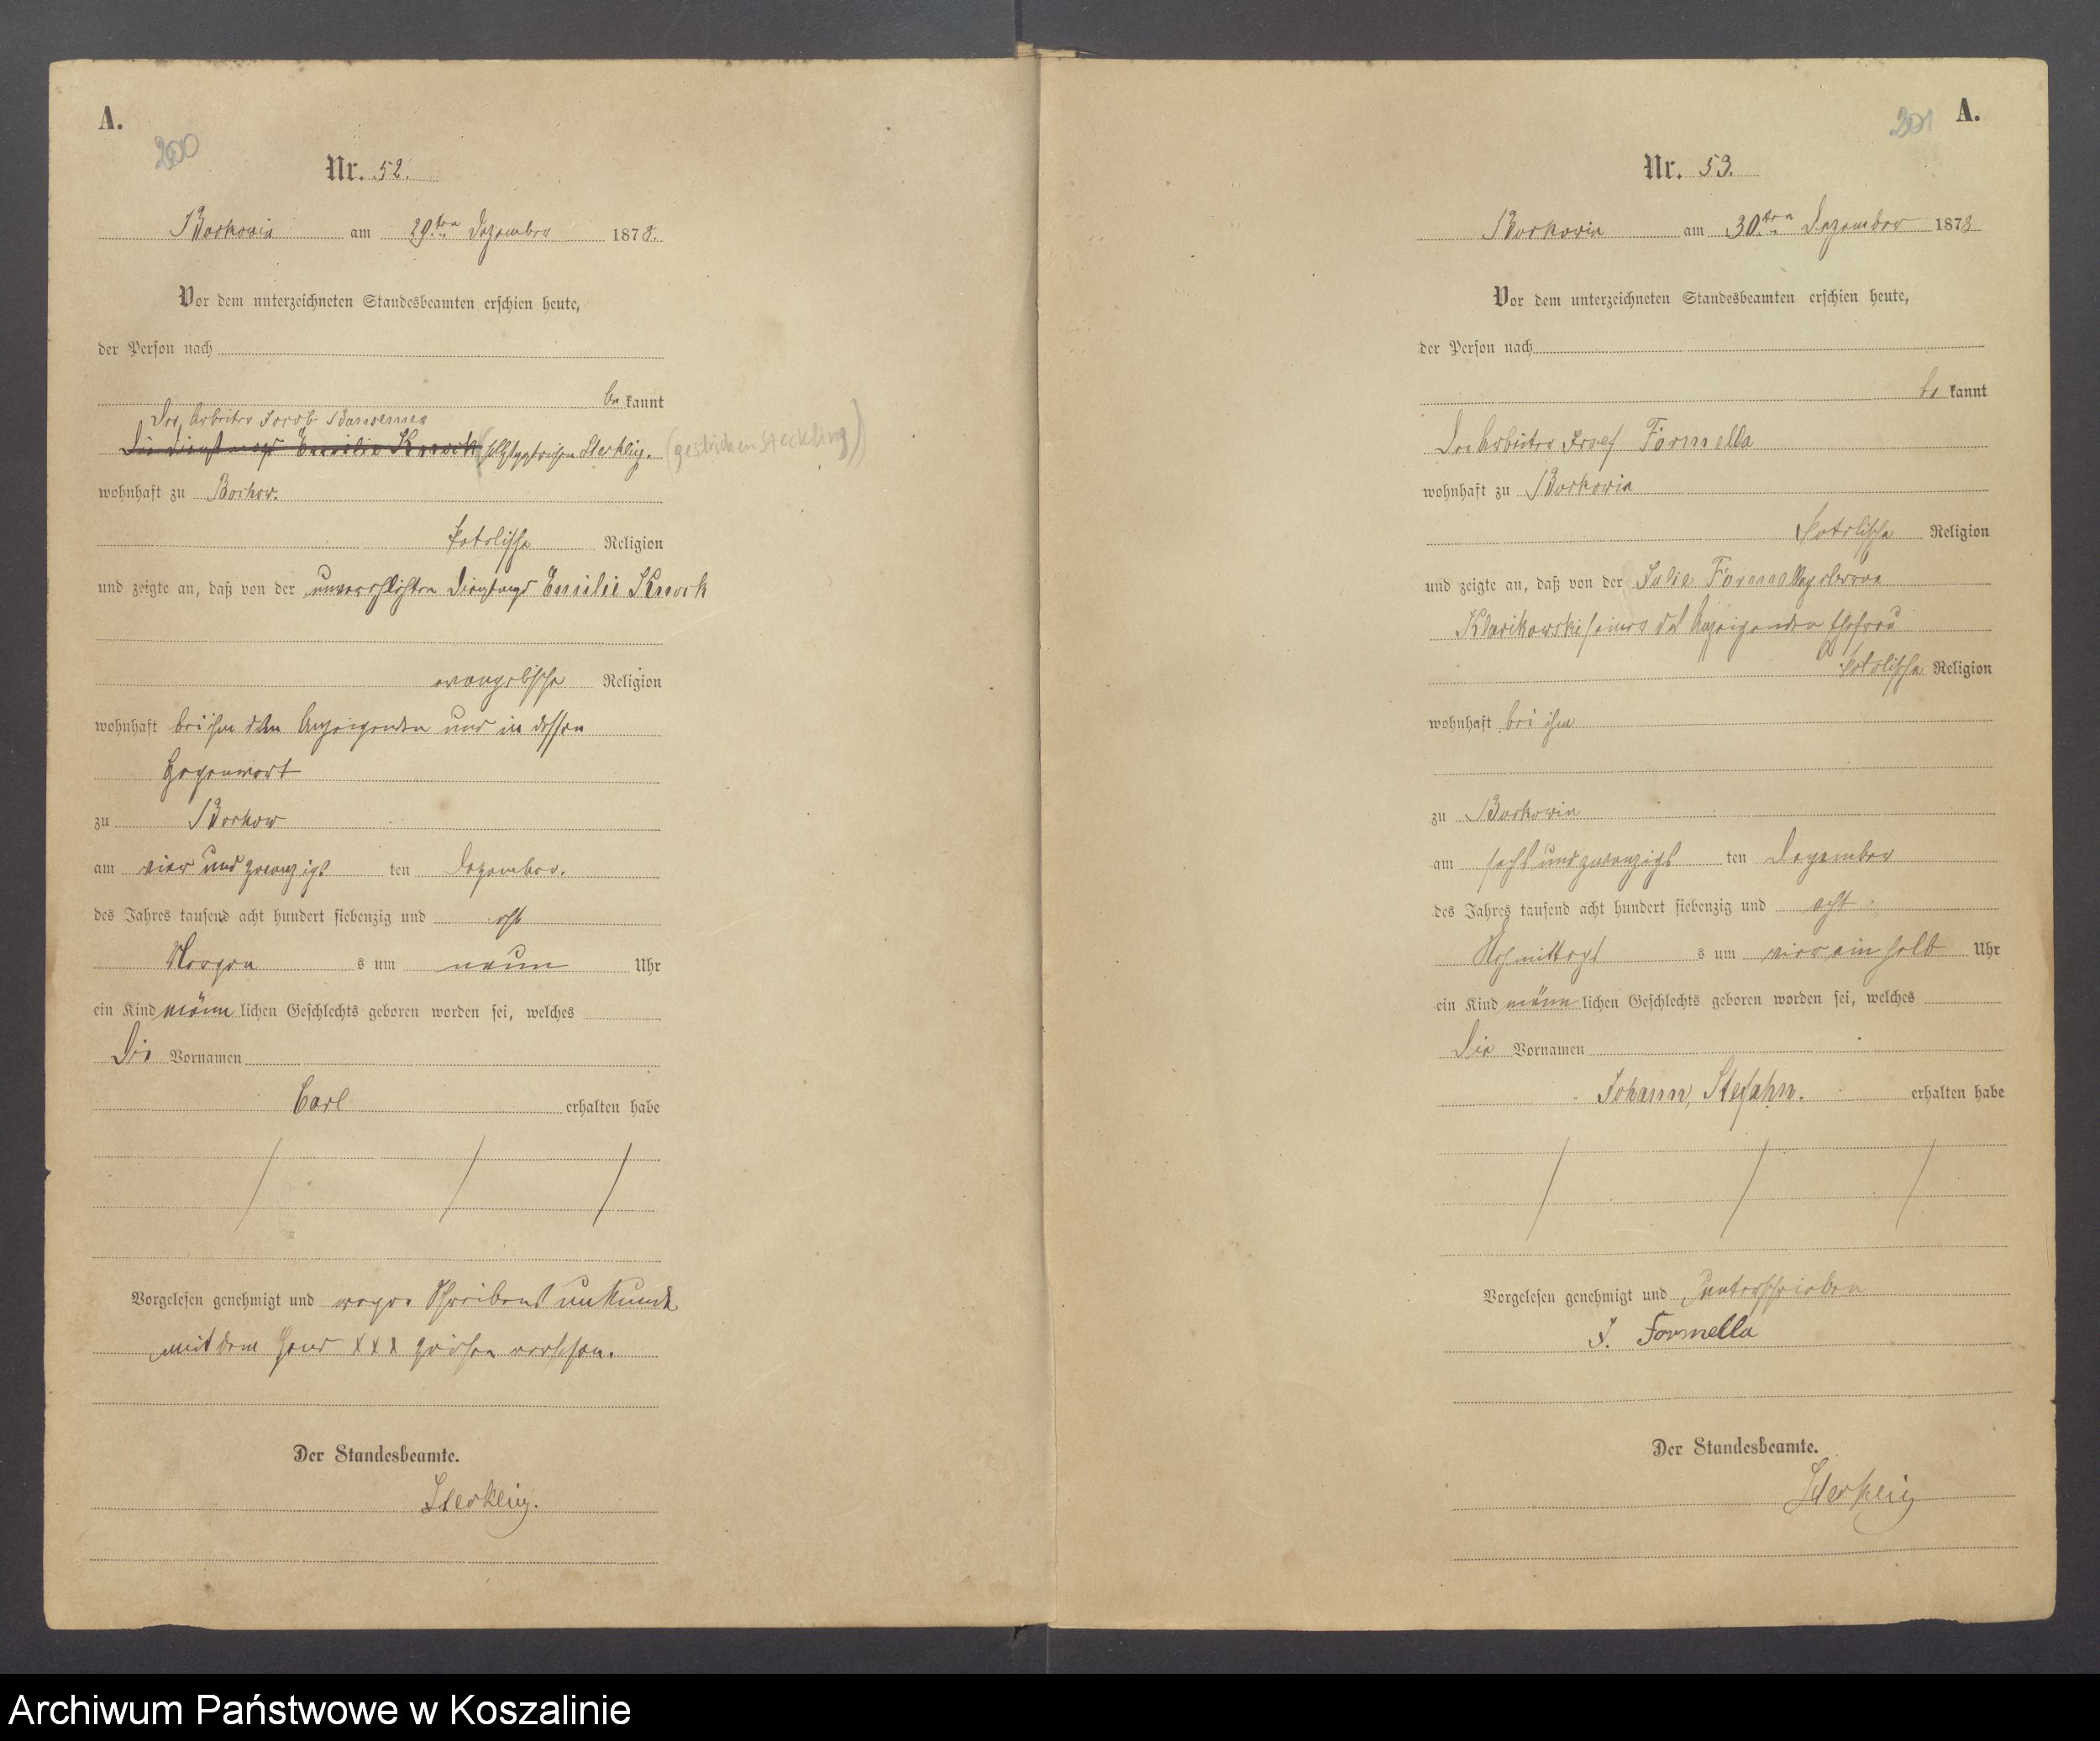 A.
200
Nr. 52.
Borkowin am 29.ten Dezember 1878.
Vor dem unterzeichneten Standesbeamten erschien heute,
der Person nach
be kannt
Der Arbeiter Jacob
Die Dienstmagd Emilie Knoch Sterkling. (gestrichen Steckling)
wohnhaft zu Borkow.
katolische Religion
und zeigte an, daß von der unverehlichten Dienstmagd Emilie Knoch
evangelische Religion
wohnhaft bei ihm dem Anzeigenden und in dessen
Gegenwart
zu Borkow
am vier und zwanzigs ten Dezember.
des Jahres tausend acht hundert siebenzig und acht
Morgen s um neun Uhr
ein Kind männ lichen Geschlechts geboren worden sei, welches
Die Vornamen
Carl erhalten habe
Vorgelesen genehmigt und wegen Schreibens unkunde
mit dem Hand XXX Zeichen versehen.
Der Standesbeamte.
Sterkling.
A.
201
Nr. 53.
Borkowin am 30.ten Dezember 1878
Vor dem unterzeichneten Standesbeamten erschien heute,
der Person nach
be kannt
Der Arbeiter Josef Formella
wohnhaft zu Borkowin
katolische Religion
und zeigte an, daß von der Julie Formella geborene
Klarikowski seiner des Anzeigenden Ehefrau
katolische Religion
wohnhaft bei ihm
zu Borkowin
am sechs und zwanzigs ten Dezember
des Jahres tausend acht hundert siebenzig und acht
Nachmittags s um vier ein halb Uhr
ein Kind männ lichen Geschlechts geboren worden sei, welches
Die Vornamen
Johann, Stefahn. erhalten habe
Vorgelesen genehmigt und unterschrieben
J. Formella
Der Standesbeamte.
Sterkling
Archiwum Państwowe w Koszalinie